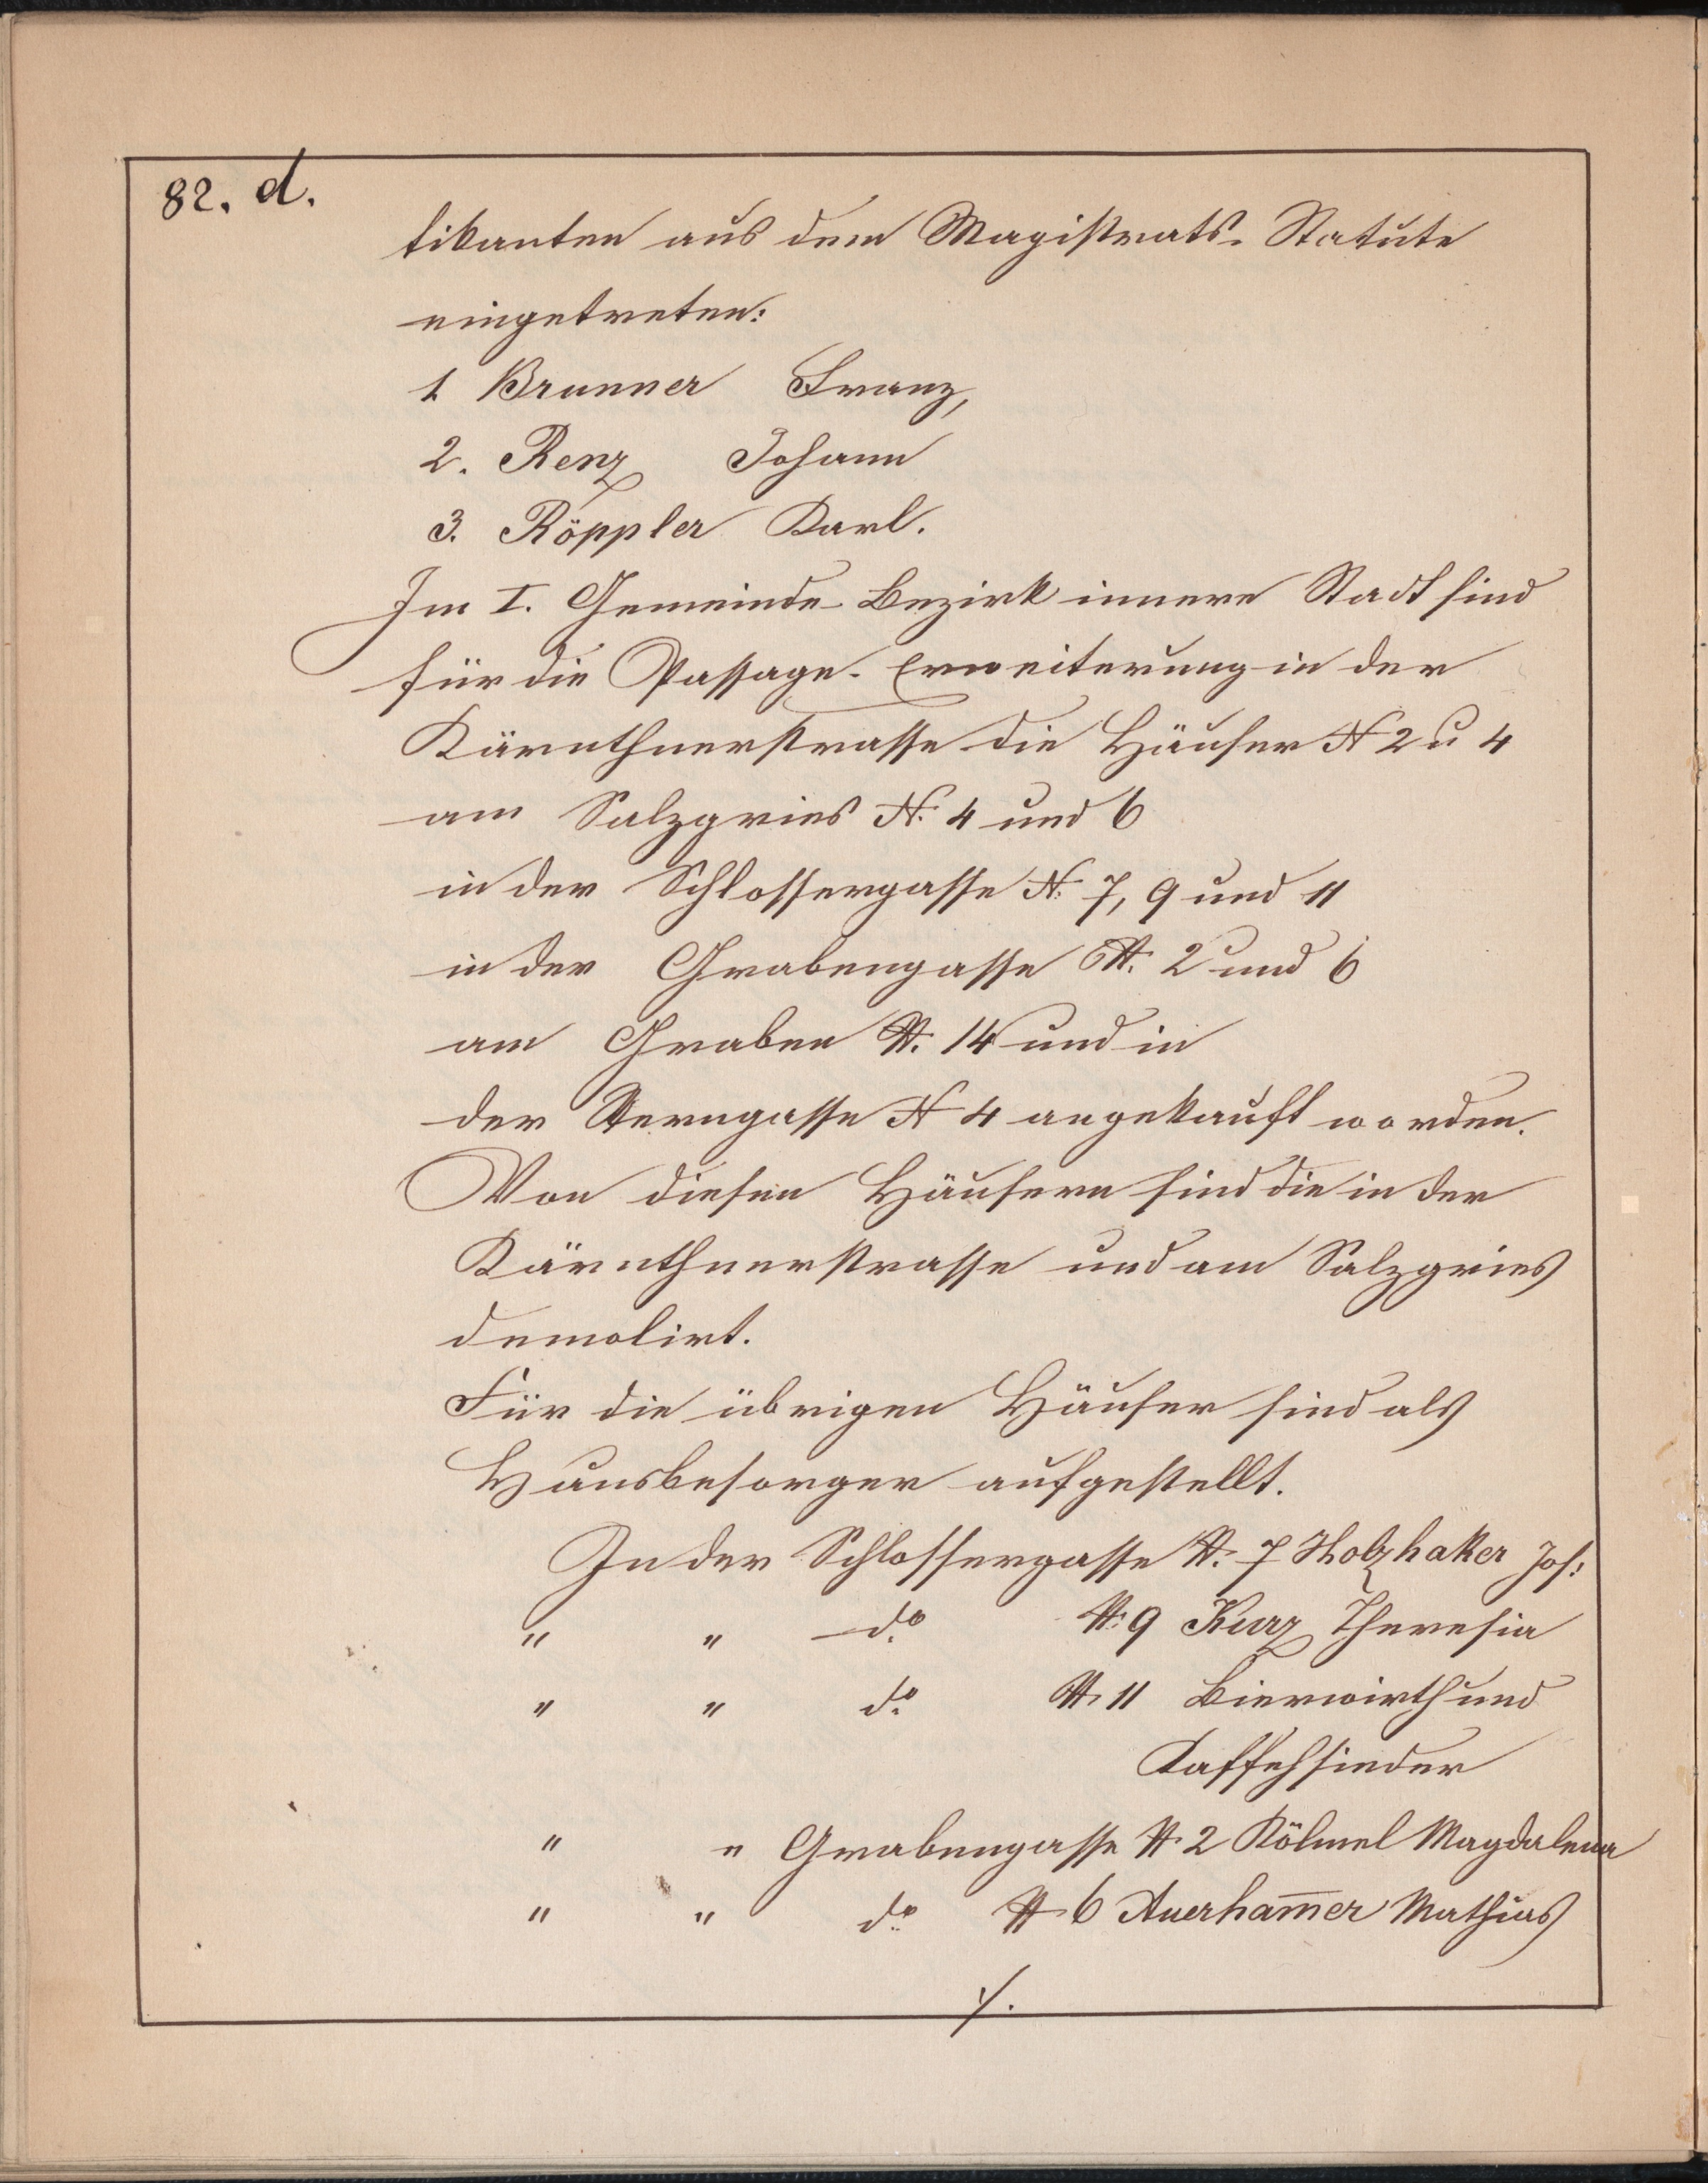 82. d.
tikanten aus dem Magistrats-Statute
eingetreten:
1 Brunner Franz,
2. Renz Johann
3. Röppler Karl.
Im I. Gemeinde-Bezirk innere Stadt sind
für die Passage-Erweiterung in der
Kärnthnerstrasse die Häuser N 2 u 4
am Salzgries N. 4 und 6
in der Schlossergasse N. 7, 9 und 11
in der Grabengasse N. 2 und 6
am Graben N. 14 und in
der Sterngasse N 4 angekauft worden.
Von diesen Häusern sind die in der
Kärnthnerstrasse und am Salzgries
demolirt.
Für die übrigen Häuser sind als
Hausbesorger aufgestellt.
In der Schlossergasse N. 7 Holzhaker Jos:
" " do N. 9 Kurz Theresia
" " do N. 11 Bierwirth und
Kaffehsieder
" " Grabengasse N. 2 Kölmel Magdalena
" " do N 6 Auerham̅er Mathias
./.